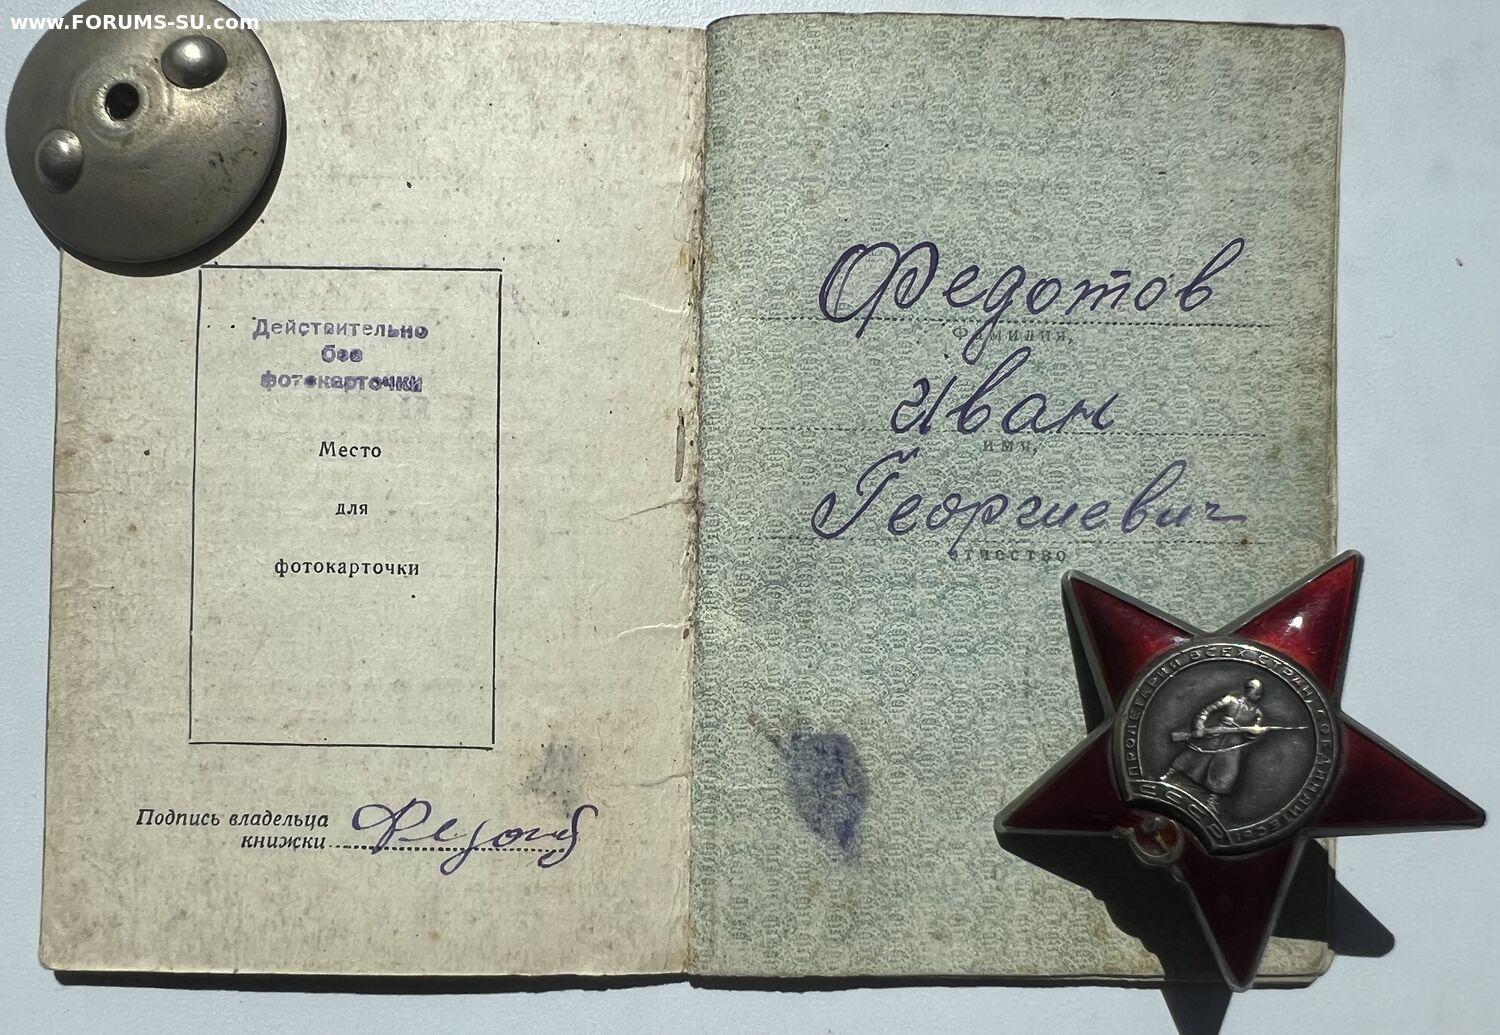 www.FORUMS-SU.com
Действительно
без
фотокарточки
Место
для
фотокарточки
Подпись владельца
книжки
Федотов
Федотов
Фамилия,
Иван
имя,
Георгиевич
отчество
ПРОЛЕТАРИИ ВСЕХ СТРАН, СОЕДИНЯЙТЕСЬ!
СССР